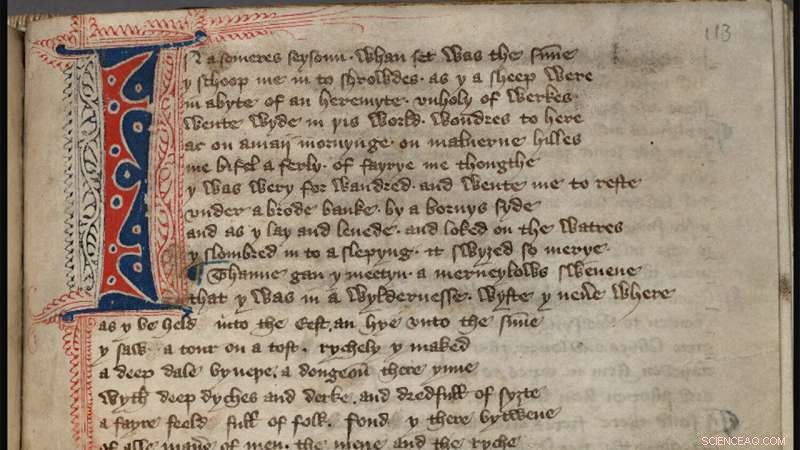 113
In a someres seyson·whan set was the sūne
y schoop me in to shrowdes·as y a sheep were
in abyte of an heremyte·vnholy of werkes·
wente wyde in yis world·wondres to here
ac on a maij mornynge·on maluerne hilles
me bifel a ferly·of fayrye me thougthe
y was wery for wandred·and wente me to reste
vnder a brode banke·by a bornys syde
and as y lay and lenede·and loked on the watres
y slombred in to a slepyng·it swyzed so merye·
Thanne gan y meetyn·a merueylows swevene
that y was in a wyldernesse·wyste y neuē where
as y be held into the Est,an hye vnto the sūne
y saw a tour on a toft·rychely y maked
a deep dale bynepe,a dongeoū there ynne
wyth deep dyches and derke,and dredfull of syzte
a fayre feeld full of folk·fond y there bytwene
of alle manē of men·the mene and the ryche
SCIENCEAQ.COM